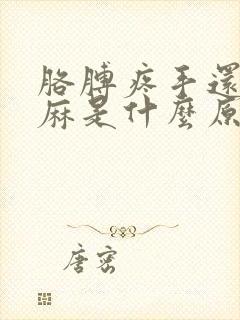 胳膊疼手還
麻是什麼原
唐密